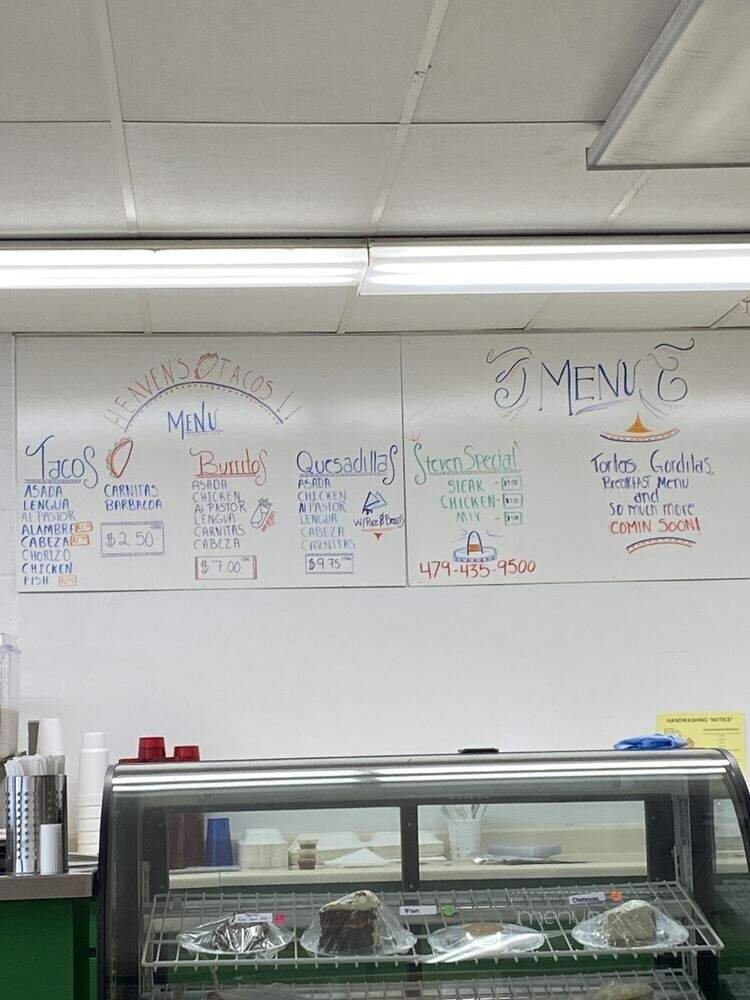 HEAVEN'S TACOS!!
MENU
Tacos
ASADA
LENGUA
Al PASTOR
ALAMBRE
CABEZA
CHORIZO
CHICKEN
FISH
CARNITAS
BARBACOA
$2.50
Burritos
ASADA
CHICKEN
Al PASTOR
LENGUA
CARNITAS
CABEZA
$7.00
Quesadillas
ASADA
CHICKEN
Al PASTOR
LENGUA
CABEZA
CARNITAS
W/Rice & Beans
$9.75
MENU
Steven Special
STEAK -
CHICKEN -
MIX -
479-435-9500
Tortas, Gorditas,
BREAKFAST MENU
and
SO MUCH MORE
COMIN SOON!
HANDWASHING "NOTICE"
Flan
menupix